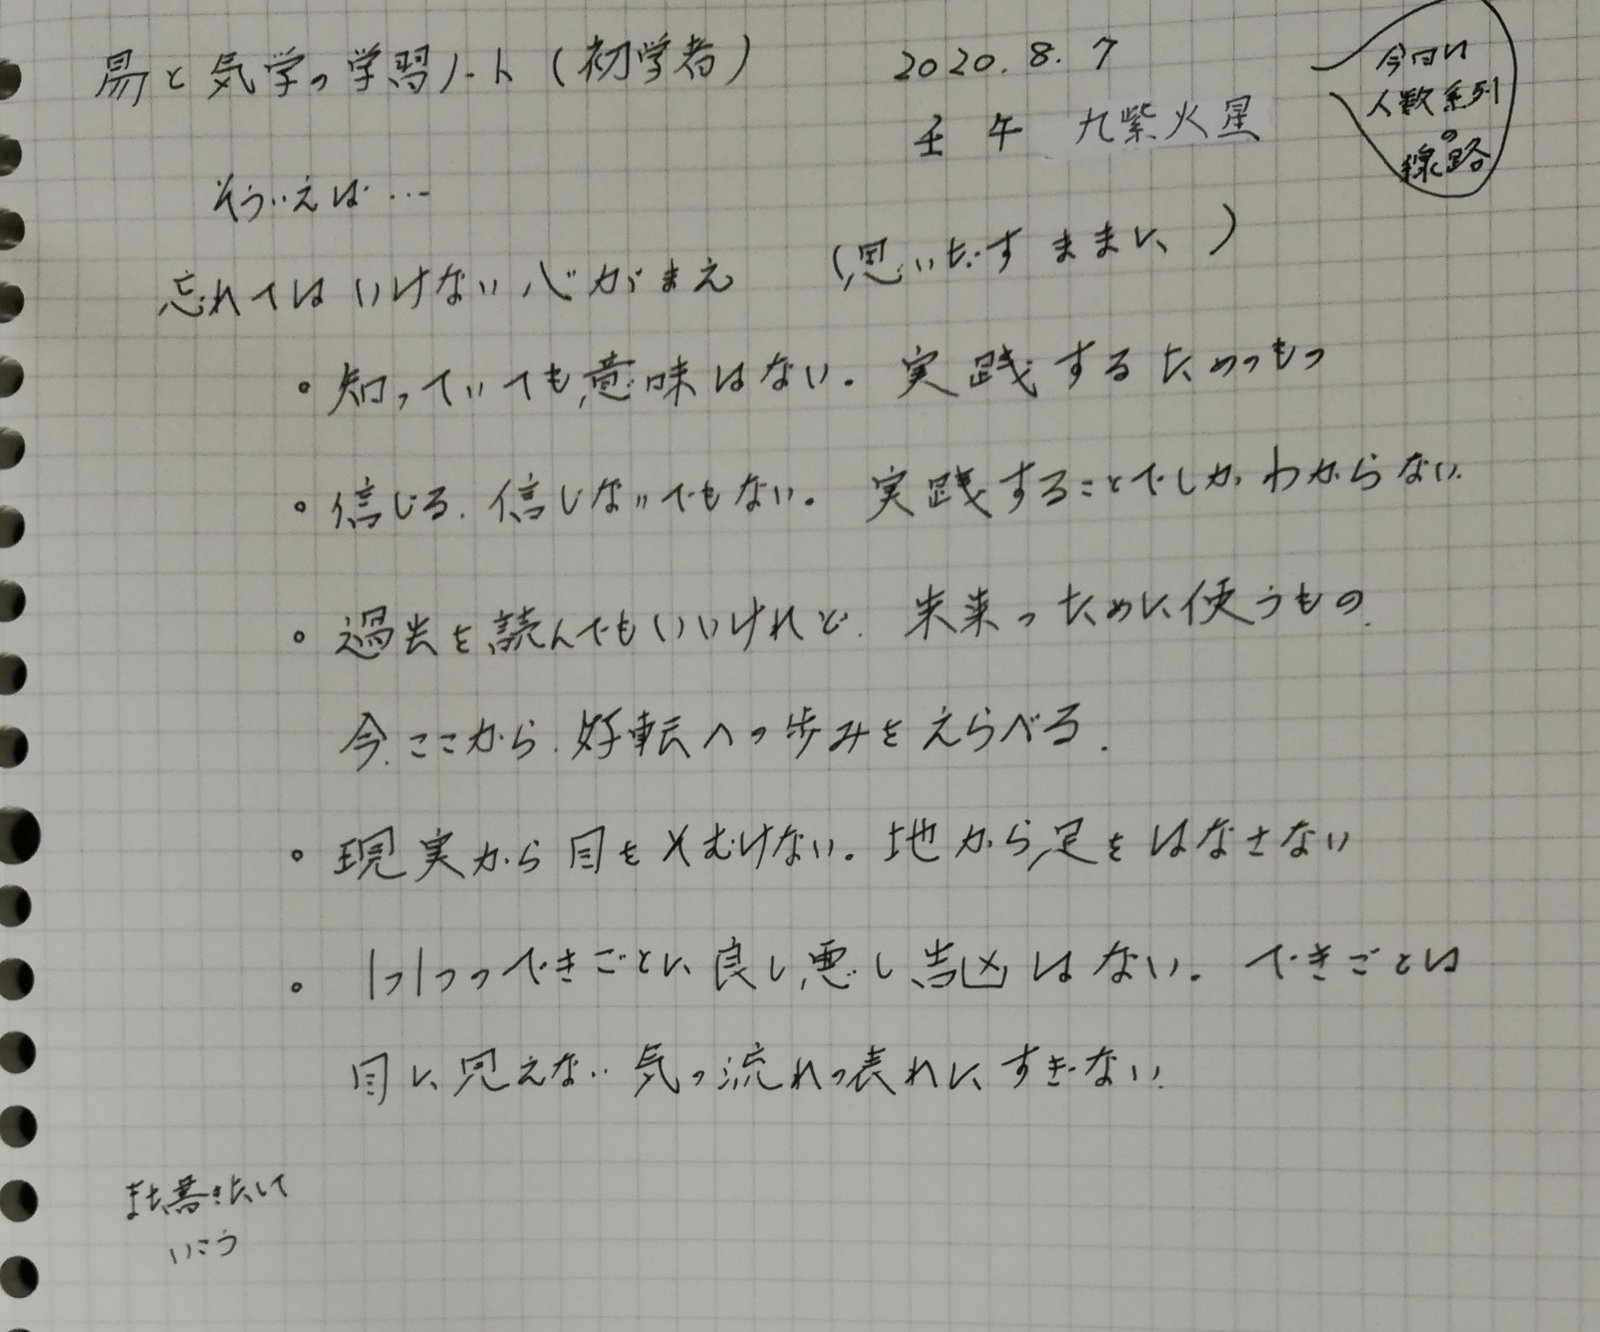 易と気学の学習ノート（初学者）
2020.8.7
壬午 九紫火星
今日は
人数系列
の
線路
そういえば…
忘れてはいけない心がまえ （思いだすままに、）
。知っていても意味はない。実践するためのもの
。信じる、信じないでもない。実践することでしかわからない。
。過去を読んでもいいけれど、未来のために使うもの。
今、ここから、好転への歩みをえらべる。
。現実から目をそむけない。地から足をはなさない
。1つ1つのできごとに良し悪し吉凶はない。できごとは
目に見えない気の流れの表れにすぎない。
また書きたして
いこう